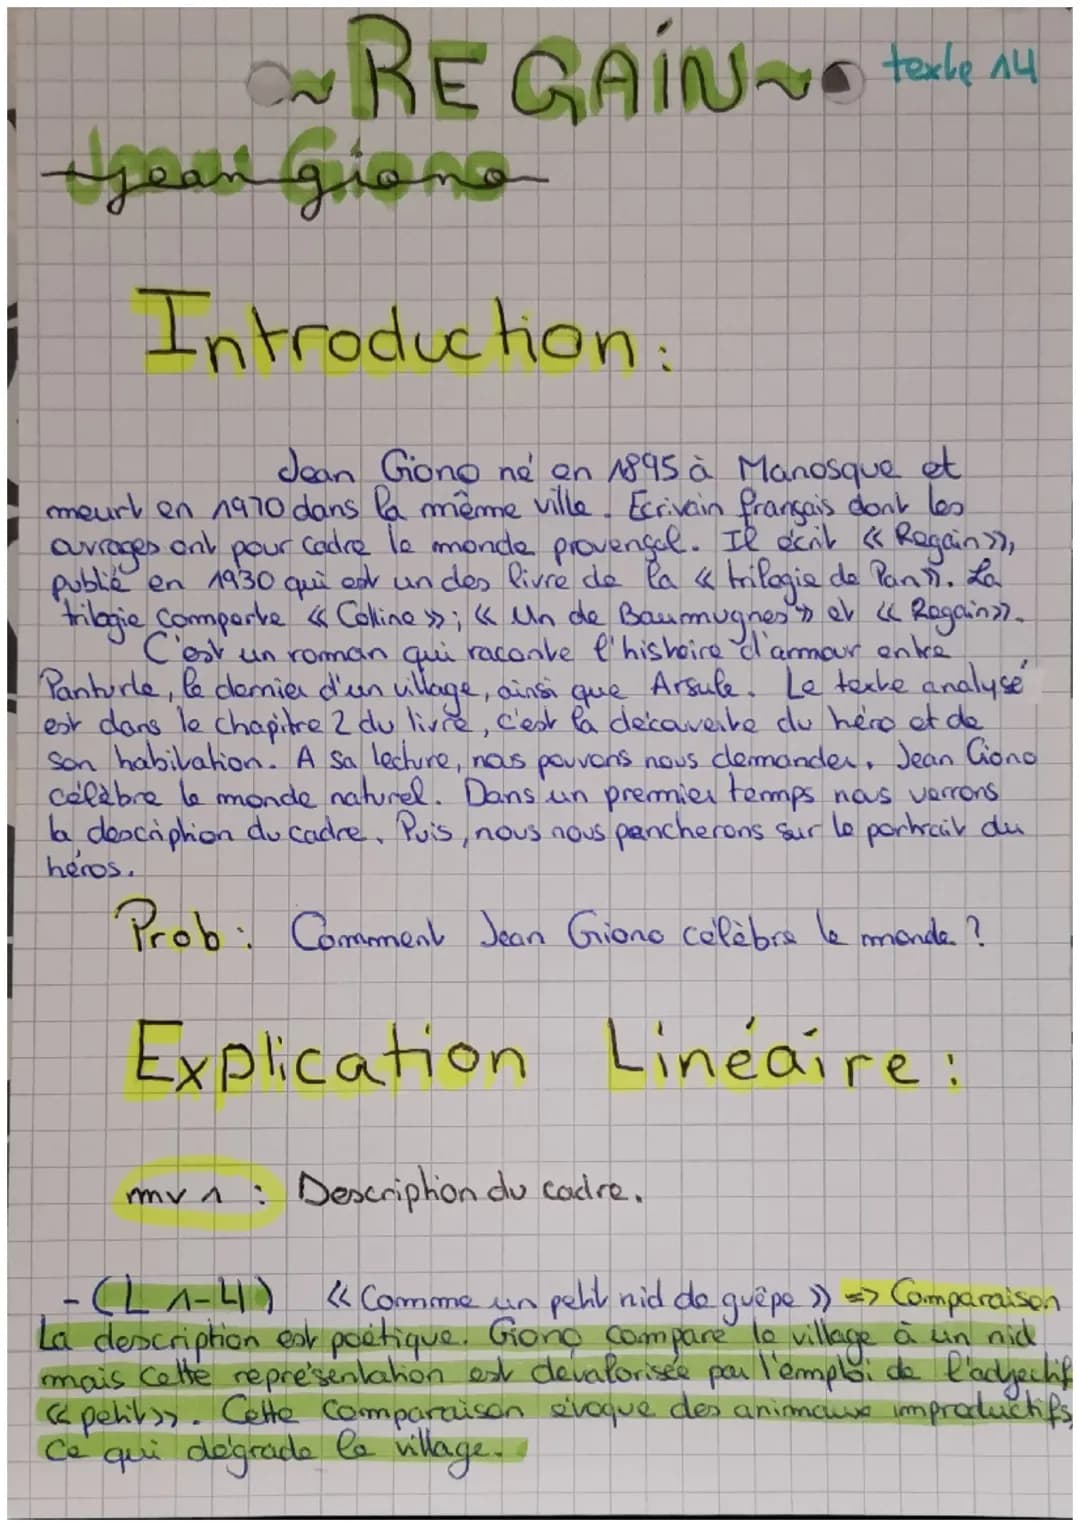 ~REGAIN~ texte 14
Jean Giono
Introduction:
Jean Giono né en 1895 à Manosque et
meurt en 1970 dans la même ville. Ecrivain français dont les
ouvrages ont pour cadre le monde provençal. Il écrit « Regain »,
publié en 1930 qui est un des livre de la « trilogie de Pan ». La
trilogie comporte « Colline » ; « Un de Baumugnes » et « Regain ».
C'est un roman qui raconte l'histoire d'amour entre
Panturle, le dernier d'un village, ainsi que Arsule. Le texte analysé
est dans le chapitre 2 du livre, c'est la découverte du héro et de
son habitation. A sa lecture, nous pouvons nous demander, Jean Giono
célèbre le monde naturel. Dans un premier temps nous verrons
la description du cadre. Puis, nous nous pencherons sur le portrait du
héros.
Prob: Comment Jean Giono célèbre le monde ?
Explication Linéaire:
mv 1 : Description du cadre.
- (L 1-4) « Comme un petit nid de guêpe » => Comparaison
La description est poétique. Giono compare le village à un nid
mais cette représentation est dévalorisée par l'emploi de l'adjectif
« petit ». Cette comparaison évoque des animaux improductifs,
Ce qui dégrade le village.